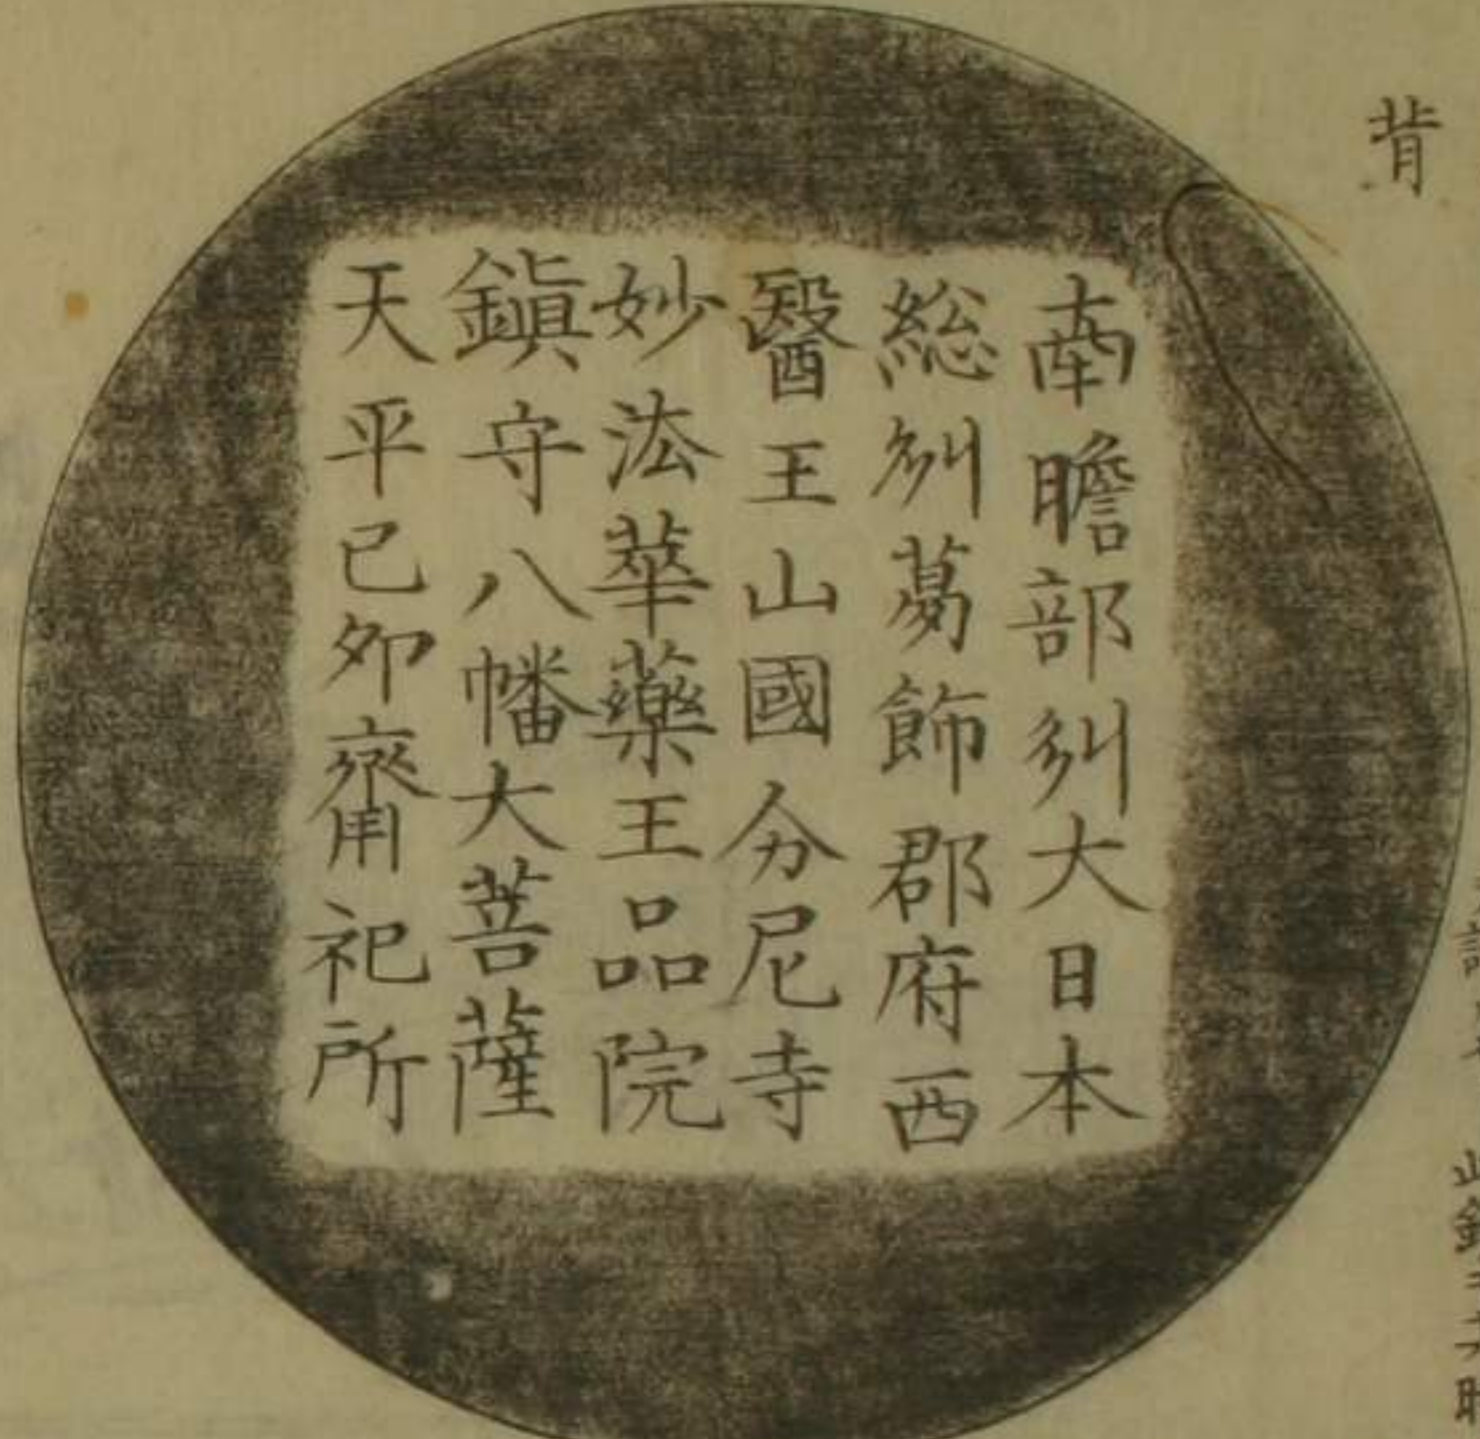 背
南瞻部州大日本
総州葛飾郡府西
醫王山國分尼寺
妙法華藥王品院
鎮守八幡大菩薩
天平己卯齋祀所